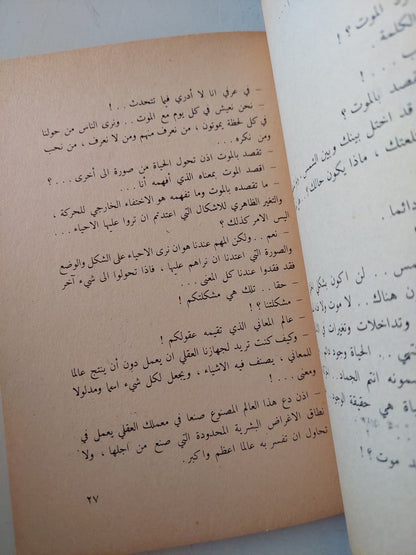 – في عرفي انا لا أدري فيما تتحدث . . !
– نحن نعيش في كل يوم مع الموت . . ونرى الناس من حولنا
في كل لحظة يموتون ، من نعرف منهم ومن لا نعرف ، من نحب
ومن نكره . .
– تقصد بالموت اذن تحول الحياة من صورة الى أخرى . . . ؟
– اقصد الموت بمعناه الذي أفهمه أنا . .
– ما تقصده بالموت وما تفهمه هو الاختفاء الخارجي للحركة ،
والتغير الظاهري للأشكال التي اعتدتم ان تروا عليها الاحياء . .
اليس الامر كذلك ؟
– نعم . . ولكن المهم عندنا هو ان نرى الاحياء على الشكل والوضع
والصورة التي اعتدنا ان نراهم عليها ، فاذا تحولوا الى شيء آخر
فقد فقدوا عندنا كل المعنى . .
– حقا . . تلك هي مشكلتكم !
– مشكلتنا ؟ !
– عالم المعاني الذي تقيمه عقولكم !
– وكيف كنت تريد لجهازنا العقلي ان يعمل دون أن ينتج عالما
للمعاني ، يصنف فيه الاشياء ، ويجعل لكل شيء اسما ومدلولا
ومعنى . . . !
– اذن دع هذا العالم المصنوع صنعا في معملك العقلي يعمل في
نطاق الاغراض البشرية المحدودة التي صنع من اجلها ، ولا
تحاول ان تفسر به عالما اعظم واكبر .
٢٧
الموت ؟ !
الكلمة .
. . . !
تقصد بالموت ؟
قد اختل بينك وبين الشمس
ماذا يكون حالك
دائما .
لن اكون
هناك . . لا موت ولا
وتداخلات وتغيرات في
الحياة وجود
انتم الجماد
هي حقيقة الوجود
موت ؟ !